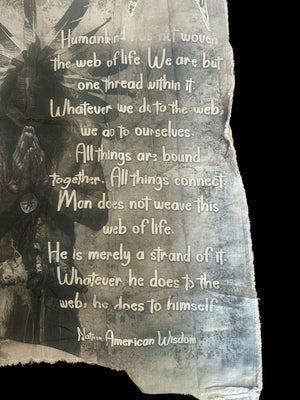 Humankind has not woven
the web of life. We are but
one thread within it.
Whatever we do to the web,
we do to ourselves.
All things are bound
together. All things connect.
Man does not weave this
web of life.
He is merely a strand of it.
Whatever he does to the
web, he does to himself.
Native American Wisdom